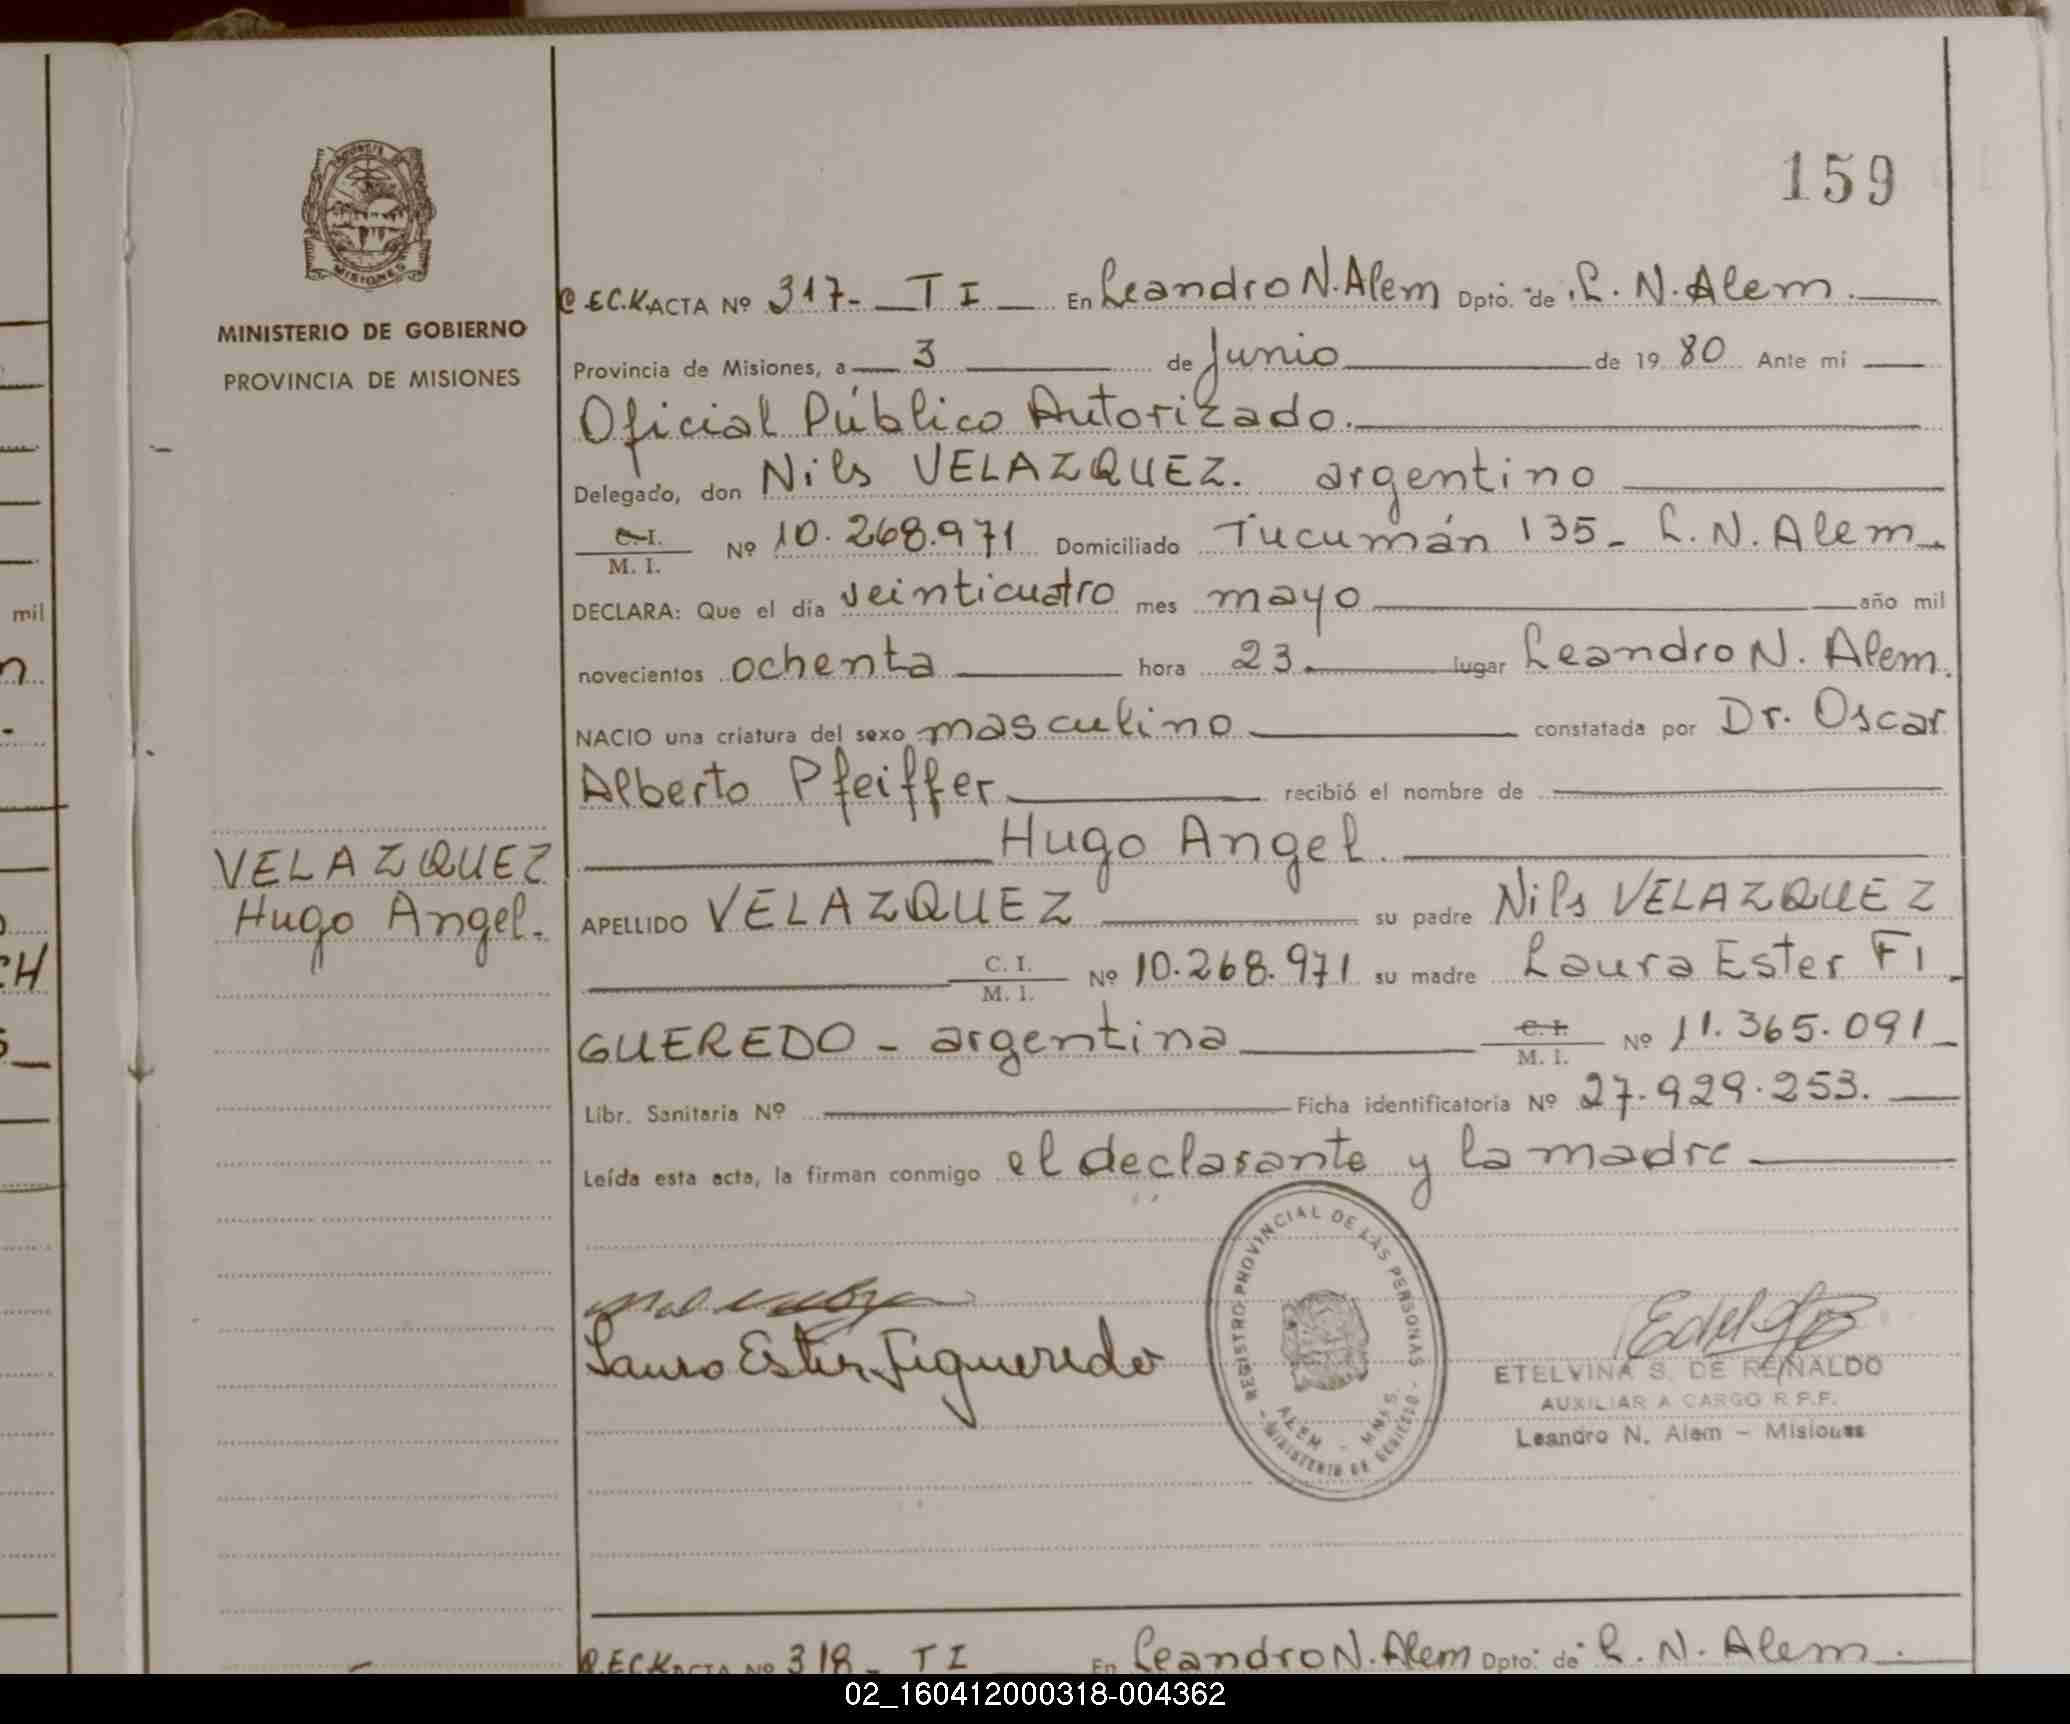 159
MINISTERIO DE GOBIERNO
PROVINCIA DE MISIONES
ACTA Nº 317- T I En Leandro N. Alem Dpto. de L. N. Alem.
Provincia de Misiones, a 3 de Junio de 19 80 Ante mi
Oficial Público Autorizado.
Delegado, don Nils VELAZQUEZ. argentino
C. I.
M. I. Nº 10.268.971 Domiciliado Tucumán 135- L. N. Alem.
DECLARA: Que el día veinticuatro mes mayo año mil
novecientos ochenta hora 23. lugar Leandro N. Alem.
NACIO una criatura del sexo masculino constatada por Dr. Oscar
Alberto Pfeiffer recibió el nombre de
Hugo Angel.
VELAZQUEZ
Hugo Angel.
APELLIDO VELAZQUEZ su padre Nils VELAZQUEZ
C. I.
M. I. Nº 10.268.971 su madre Laura Ester FI
GUEREDO - argentina C. I.
M. I. Nº 11.365.091
Libr. Sanitaria Nº Ficha identificatoria Nº 27.929.253.
Leída esta acta, la firman conmigo el declarante y la madre
Laura Ester Figueredo
REGISTRO PROVINCIAL DE LAS PERSONAS
ALEM - MNES.
- MINISTERIO DE GOBIERNO -
ETELVINA S. DE REINALDO
AUXILIAR A CARGO R.P.P.
Leandro N. Alem - Misiones
ACTA Nº 318- T I En Leandro N. Alem Dpto. de L. N. Alem.
mil
02_160412000318-004362